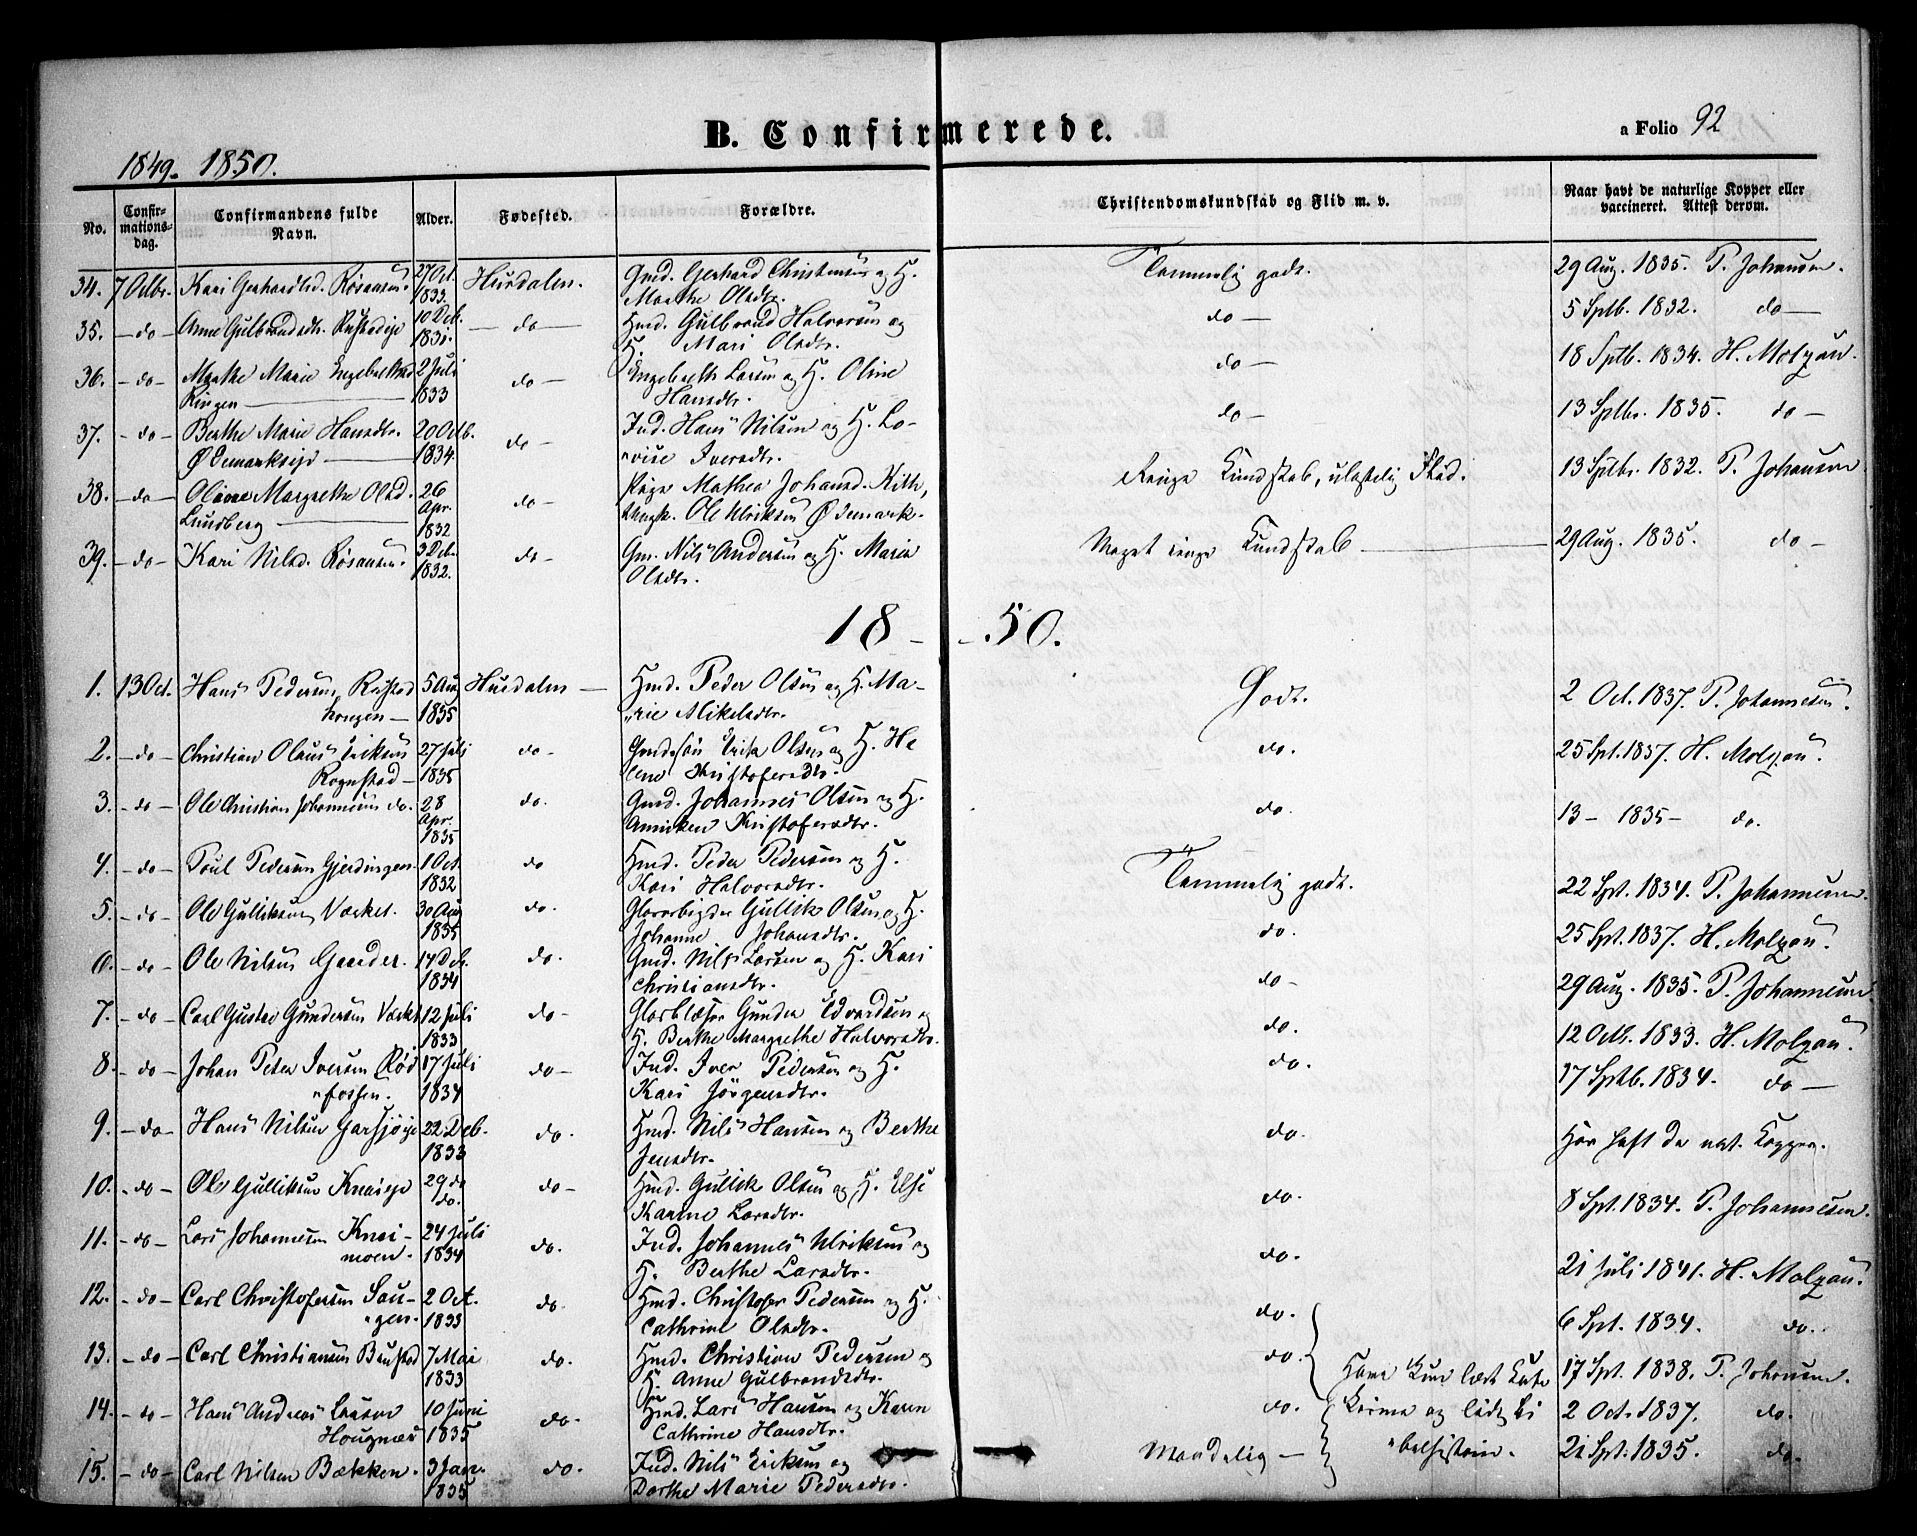 B. Confirmerede.
a Folio 92
1849. 1850.
No. Confirmationsdag. Confirmandens fulde Navn. Alder. Fødested. Forældre. Christendomskundskab og Flid m. v. Naar havt de naturlige Kopper eller vaccineret. Attest derom.
34. 7 Octbr. Kari Gerhardtsd. Røsaasen. 27 Oct. 1833. Hurdalen. Gmd. Gerhard Christensen og H. Marthe Olsdtr. Temmelig godt. 29 Aug. 1835. P. Johansen.
35. – do – Anne Gulbrandsdtr. Rustadeje 10 Deb. 1831. – do – Hmd. Gulbrand Halvorsen og H. Mari Olsdtr. do – 5 Sptb. 1832. do –
36. – do – Marthe Marie Engebrethsd Ringen – 2 Juli 1833 do – Engebreth Larsen og H. Oline Hansdtr. do – 18 Sptb. 1834. H. Molzau.
37. – do – Berthe Marie Hansdtr. Ødemarkseje – 20 Octb. 1834. do – Ind. Hans Nilsen og H. Lovise Iversdtr. do – 13 Sptbr. 1835. do –
38. – do – Oliane Margrethe Olsd. Lundberg – 26 Apr. 1832 do – Pige Mathea Johansd. Ungk. Ole Ulriksen Ødemark. Ringe Kundskab, ulastelig Flid. 13 Sptbr. 1832. P. Johansen
39. – do – Kari Nilsd. Røsaasen. 3 Deb. 1832. do – Gm. Nils Andersen og H. Marie Olsdtr. Meget ringe Kundskab – 29 Aug. 1835. do –
18 – – 50.
1. 13 Oct. Hans Pedersen Rustad haugen – 5 Aug 1835 Hurdalen – Hmd. Peder Olsen og H. Marie Mikelsdtr. Godt. 2 Oct. 1837. P. Johannesen.
2. – do – Christian Olaus Eriksen Rognstad – 27 Juli 1835 do – Gmdssøn Erik Olsen og H. Helene Kristofersdtr. do. 25 Spt. 1837. H. Molzau.
3. – do – Ole Christian Johannesen do. 28 Apr. 1835 do. Gmd. Johannes Olsen og H. Anniken Kristofersdtr. do. 13 – 1835 – do.
4. – do – Poul Pedersen Gjerdingen. 1 Oct. 1832 do Hmd. Peder Pedersen og H. Kari Halvorsdtr. Temmelig godt. 22 Spt. 1834. P. Johannesen.
5. – do – Ole Gulliksen Værket. 30 Aug 1835 do. Glasarbejder Gullik Olsen og H. Johanne Johansdtr. do. 25 Spt. 1837. H. Molzau.
6. – do – Ole Nilsen Gaarder. 14 Deb. 1834 do. Gmd. Nils Larsen og H. Kari Christiansdtr. do – 29 Aug. 1835. P. Johannesen
7. – do – Carl Gustav Gundersen Værket 12 Juli 1833 do – Glasblæser Gunder Edvardsen og H. Berthe Margrethe Halvorsdtr. do. 12 Octb. 1833. H. Molzau.
8. – do – Johan Peter Iversen Rød fossen. 17 Juli 1834 do – Ind. Iver Pedersen og H. Kari Jörgensdtr. do. 17 Sptb. 1834. do –
9. – do – Hans Nilsen Garsjøeje 22 Deb. 1833 do. Hmd. Nils Hansen og Berthe Jensdtr. do. Har haft de nat. Kopper.
10. – do – Ole Gulliksen Knaieje 29 do do. do – Hmd. Gullik Olsen og H. Else Karine Larsdtr. do. 8 Spt. 1834. P. Johannesen.
11. – do – Lars Johannesen Knaimoen. 24 Juli 1834 do. Ind. Johannes Ulriksen og H. Berthe Larsdtr. do. 21 Juli 1841. H. Molzau.
12. – do – Carl Christofersen Haugen. 2 Oct. 1833 do. Hmd. Christofer Pedersen og H. Cathrine Olsdtr. do. 6 Spt. 1834. do.
13. – do – Carl Christiansen Bustad 7 Mai 1833 do. Hmd. Christian Pedersen og H. Anne Gulbrandsdtr. do. Have kun læst 17 Spt. 1838. P. Johansen.
14. – do – Hans Andreas Larsen Hougnæs 10 Juni 1835 do. Hmd. Lars Hansen og Karen Cathrine Hansdtr. do. og lidt Bi 2 Oct. 1837. do.
15. – do – Carl Nilsen Bækken. 3 Jan. 1835 do. Ind. Nils Eriksen og Dorthe Marie Pedersdtr. Maadelig – belhistorie. 21 Spt. 1835. do.